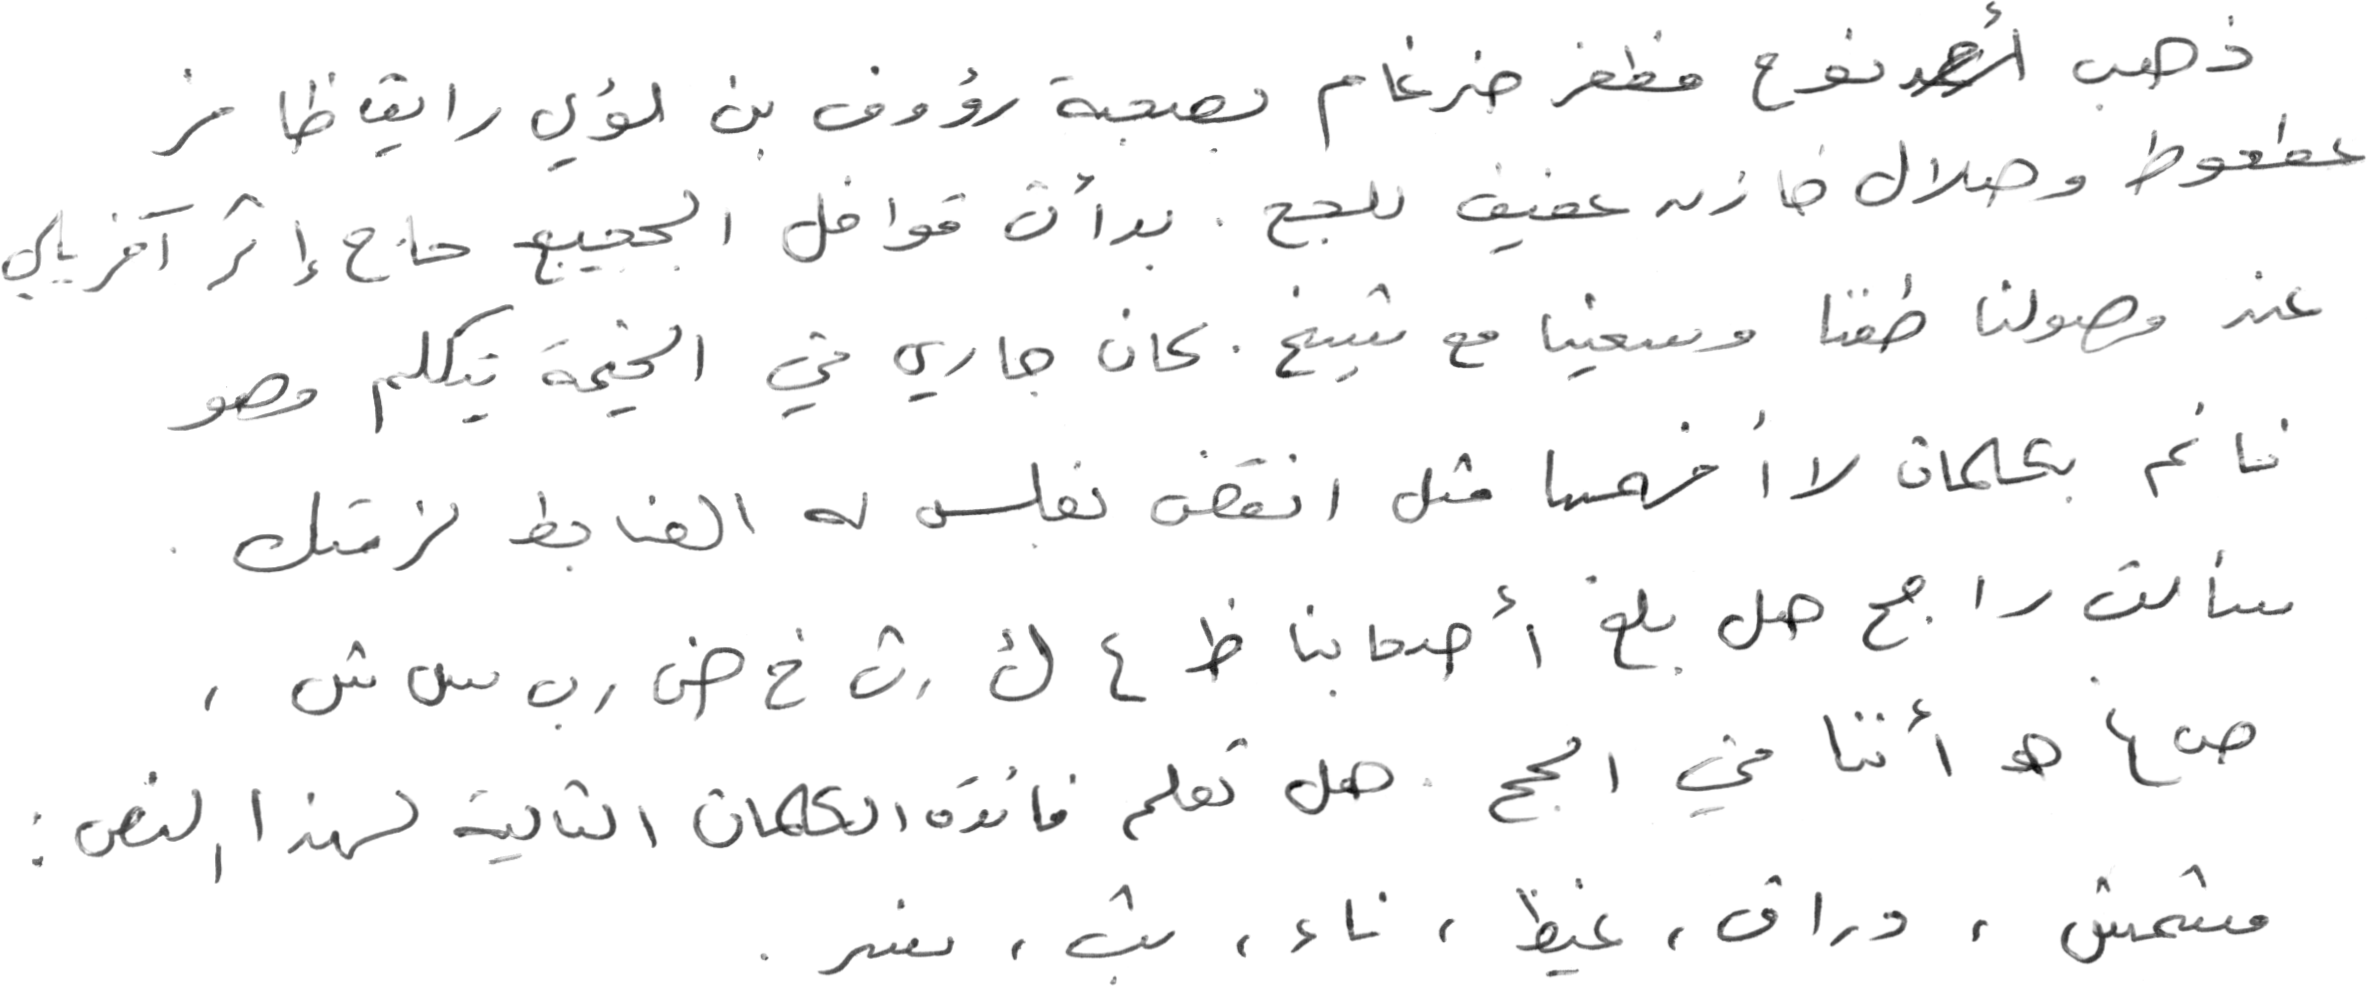 ذهب أحمد نوح مظفر ضرغام بصحبة رؤوف بن لؤي رايقاظافر
عطعوط وهلال خازن عفيف للحج . بدأت قوافل الحجيج حاج إثر آخر يلي
عند وصولنا طفنا وسعينا مع شيخ . كان جاري في الخيمة يتكلم وهو
نائم بكلمات لا أفهمها مثل انقض نفلس له الضابط لزمتك .
سألت راجح هل بلغ أصحابنا ظ ع ك ، ث خ ض ، ب س ش ،
ص غ هـ أننا في الحج . هل تعلم فائدة الكلمات التالية لهذا النص :
مشمش ، دراق ، غيظ ، ناء ، بث ، نسر .